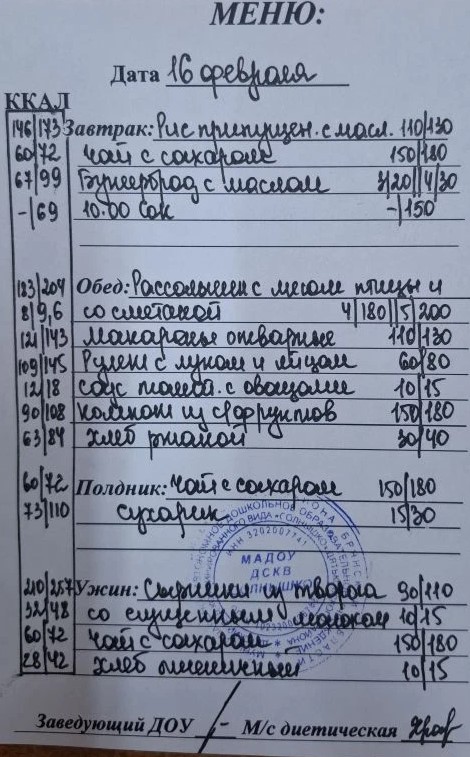 МЕНЮ:
Дата 16 февраля
ККАЛ
146/173 Завтрак: Рис припущен. с масл. 110/130
60/72 Чай с сахаром 150/180
67/99 Бутерброд с маслом 3/20//4/30
-/69 10.00 Сок -/150
183/204 Обед: Рассольник с мясом птицы и
8/9,6 со сметаной 4/180//5/200
121/143 Макароны отварные 110/130
109/145 Рулет с луком и яйцом 60/80
12/18 Соус томатн. с овощами 10/15
90/108 Компот из с/фруктов 150/180
63/84 Хлеб ржаной 30/40
60/72 Полдник: Чай с сахаром 150/180
73/110 Сухарик 15/30
210/257 Ужин: Сырники из творога 90/110
32/48 со сгущенным молоком 10/15
60/72 Чай с сахаром 150/180
28/42 Хлеб пшеничный 10/15
МАДОУ
ДСКВ
Заведующий ДОУ М/с диетическая